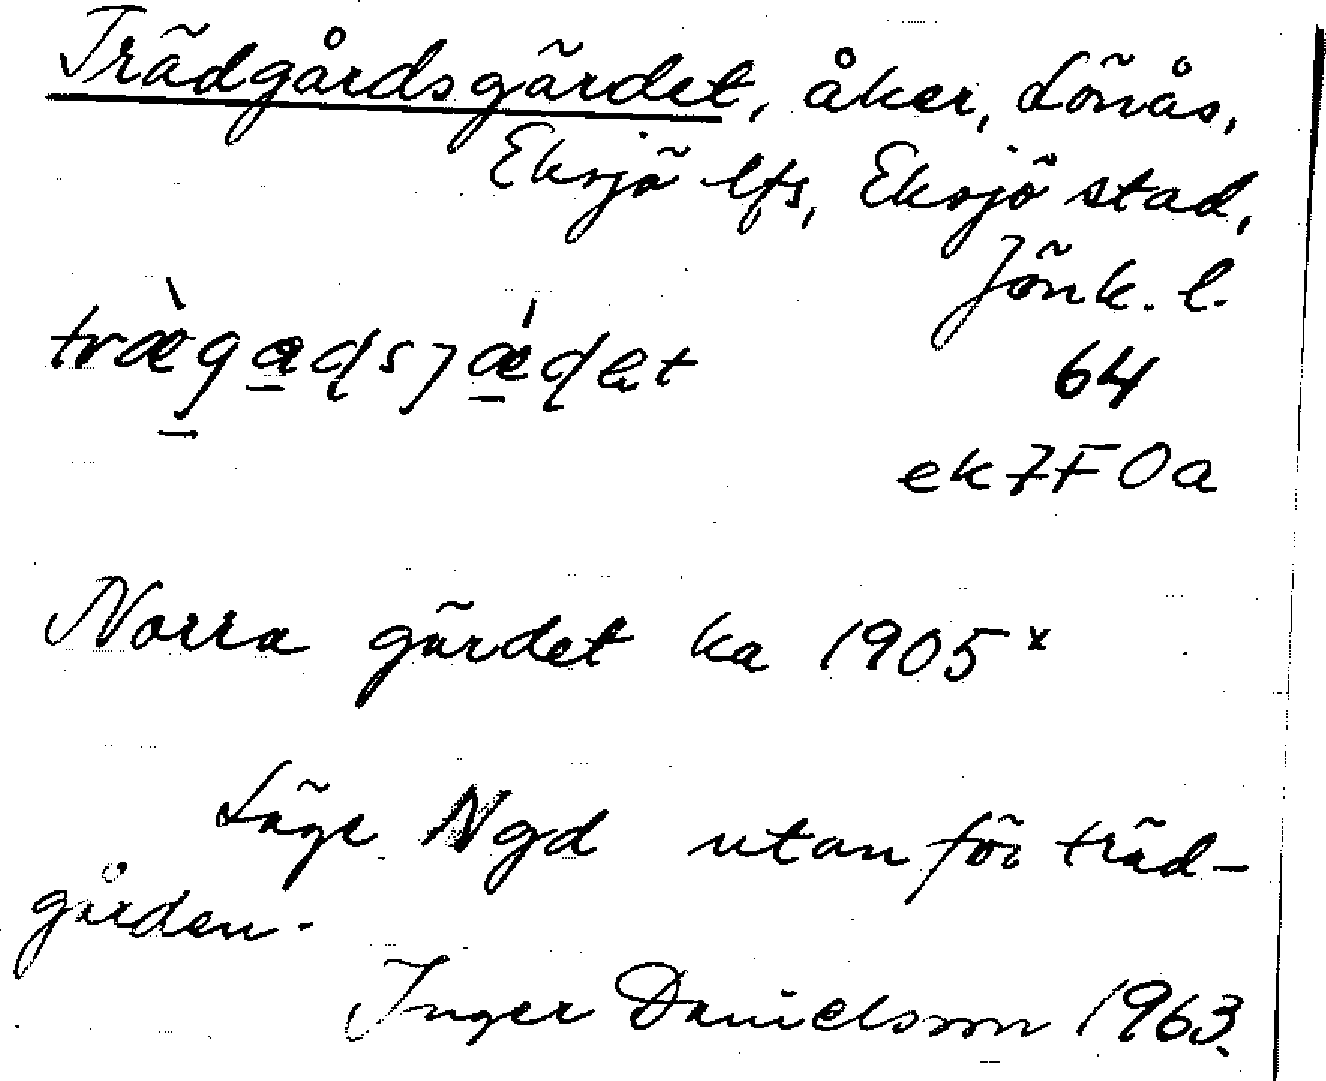 Trädgårdsgärdet, åker, Lönås,
Eksjö lfs, Eksjö stad,
Jönk. l.
træ̀gadsjǽdet
64
ek 7F 0a
Norra gärdet ka 1905 x
Läge Ngd utanför träd-
gården.
Inger Danielsson 1963.